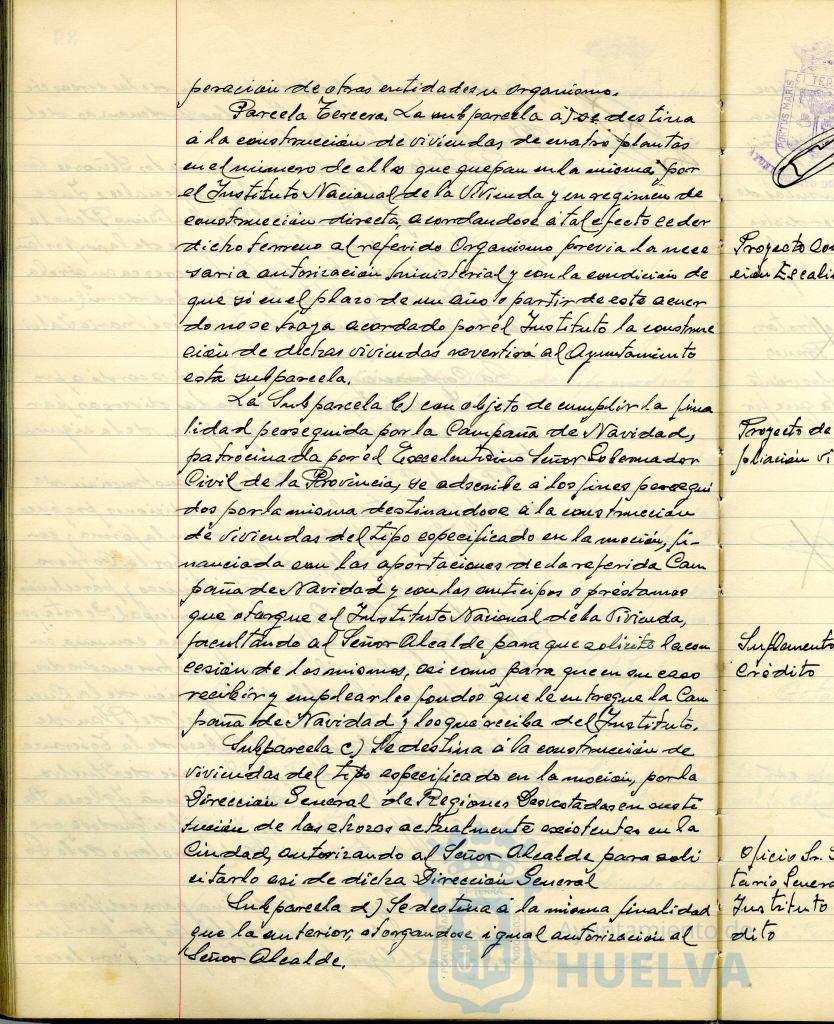 peracion de otras entidades u organismo.
Parcela Tercera. La subparcela a) se destina
á la construcción de viviendas de cuatro plantas
en el número de ellas que quepan en la misma, por
el Instituto Nacional de la Vivienda y en regimen de
construcción directa, acordandose á tal efecto ceder
dicho terreno al referido Organismo previa la nece
saria autorización ministerial y con la condición de
que si en el plazo de un año a partir de este acuer
do no se haya acordado por el Instituto la construc
ción de dichas viviendas revertirá al Ayuntamiento
esta subparcela.
La Subparcela b) con objeto de cumplir la fina
lidad perseguida por la Campaña de Navidad,
patrocinada por el Excelentisimo Señor Gobernador
Civil de la Provincia, se adscribe á los fines persegui
dos por la misma destinandose á la construcción
de viviendas del tipo especificado en la moción, fi-
nanciada con las aportaciones de la referida Cam
paña de Navidad y con los anticipos o préstamos
que otorgue el Instituto Nacional de la Vivienda,
facultando al Señor Alcalde para que solicite la con
cesión de los mismos, asi como para que en su caso
recibir y emplear los fondos que le entregue la Cam
paña de Navidad y los que reciba del Instituto.
Subparcela c) Se destina á la construcción de
viviendas del tipo especificado en la mocion, por la
Dirección General de Regiones Devastadas en susti
tución de las chozas actualmente existentes en la
Ciudad, autorizando al Señor Alcalde para soli
citarlo asi de dicha Dirección General
Subparcela d) Se destina á la misma finalidad
que la anterior, otorgandose igual autorizacion al
Señor Alcalde.
PORTUS MARIS
Proyecto Con
ción Escali
Proyecto de
pliación vi
Suplemento
Crédito
Oficio Sr. S
tario General
Instituto
dito
Ayuntamiento de
HUELVA